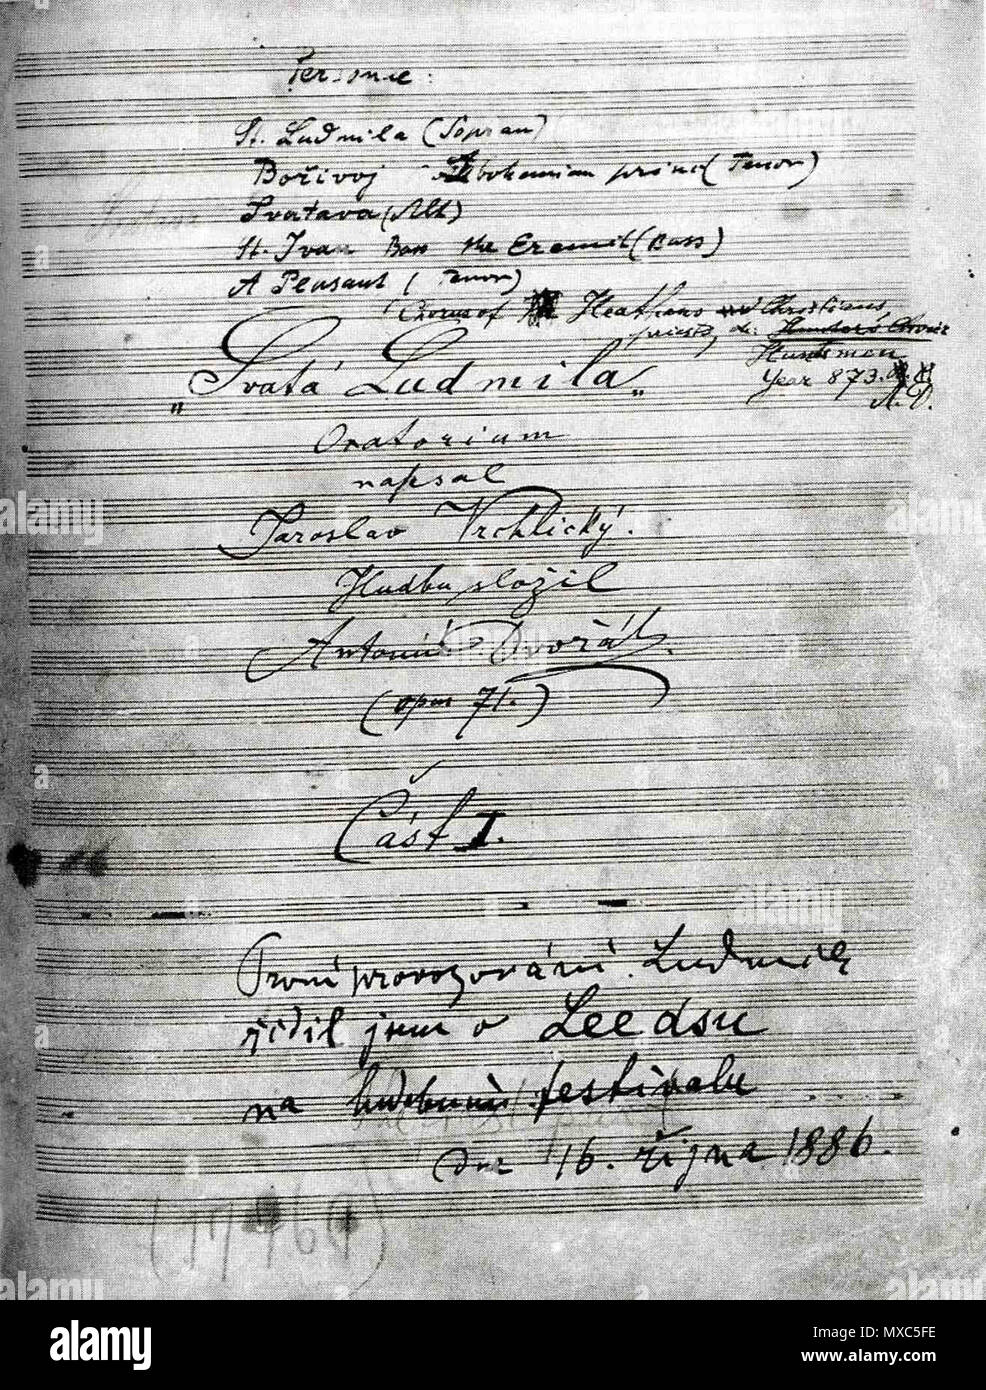 Personae:
St. Ludmila (Sopran)
Bořivoj A bohemian prince (Tenor)
Svatava (Alt)
St. Ivan Bass the Eremit (Bass)
A Peasant (Tenor)
(Chorus of Heathens and Christians,
priests, Chorus
Huntsmen
Year 873.
A. D.
„Svatá Ludmila„
Oratorium
napsal
Jaroslav Vrchlický.
Hudbu složil
Antonín Dvořák.
(opus 71.)
Část I.
První provozování Ludmily
řídil jsem v Leedsu
na hudebním festivalu
dne 16. října 1886.
(17 464)
alamy
Image ID: MXC5FE
www.alamy.com